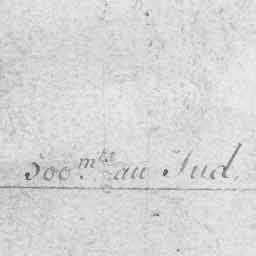 500 mtes au Sud.